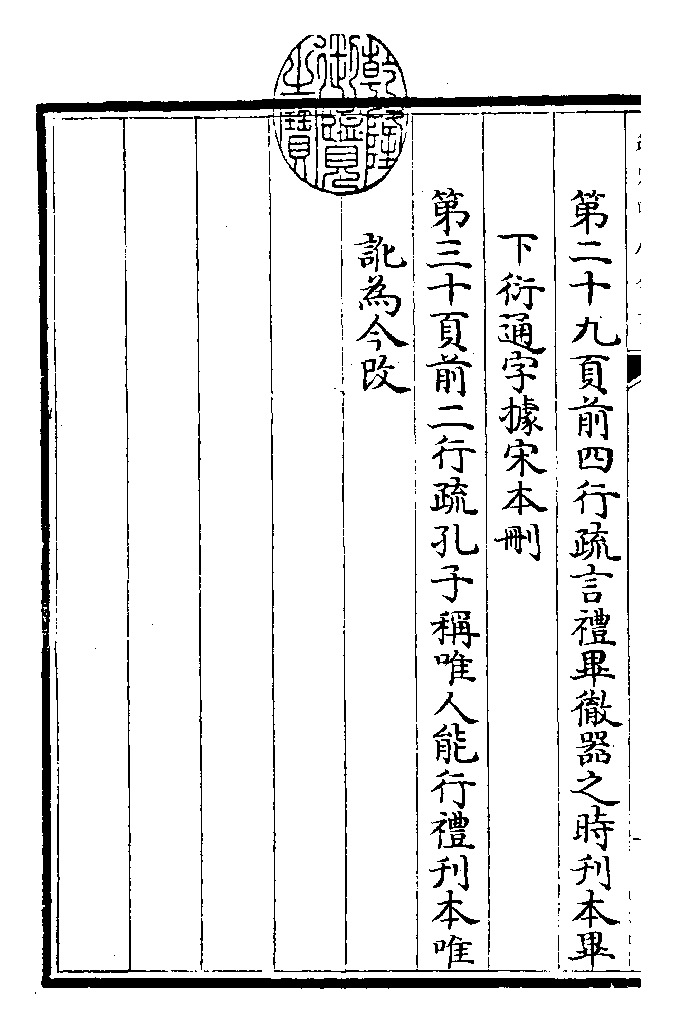 第二十九頁前四行疏言禮畢徹器之時刊本畢
下衍通字據宋本刪
第三十頁前二行疏孔子稱唯人能行禮刊本唯
訛為今改
乾隆
御覽
之寶